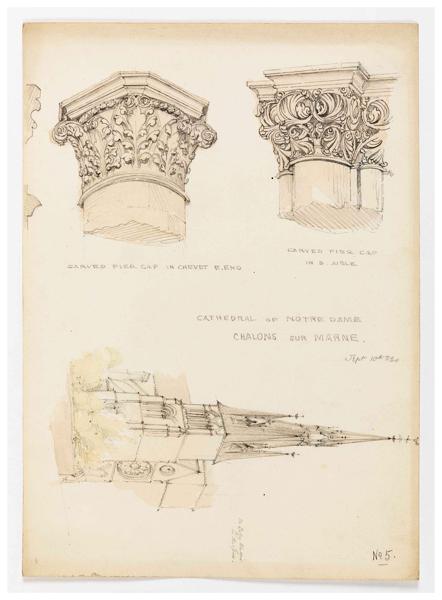 CARVED PIER CAP IN CHEVET E. END
CARVED PIER CAP
IN S. AISLE
CATHEDRAL OF NOTRE DAME
CHALONS SUR MARNE.
Sept 10th
No 5.